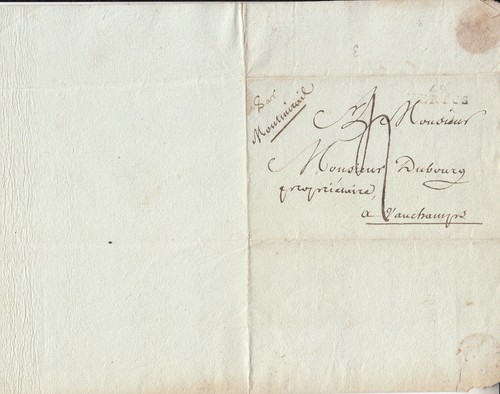 Par
Montmirail
A Monsieur
Monsieur Dubourg
propriétaire,
a Vauchamps